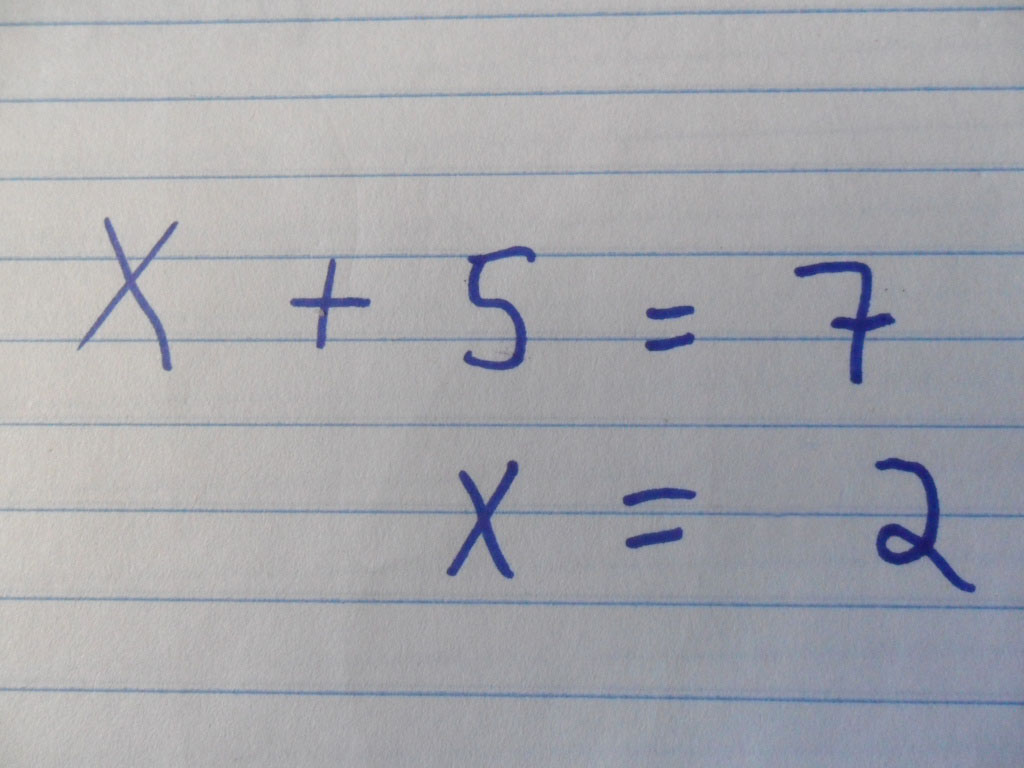 X + 5 = 7
x = 2